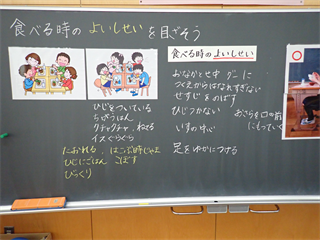 食べる時の よいしせい を目ざそう
ひじをついている
クチャクチャ、ねてる
イスぐらぐら
たおれる、はこぶ時じゃま
ひじにごはん こぼす
びっくり
食べる時のよいしせい
おなかとせ中 グーに
つくえからはなれすぎない
せすじをのばす
ひじつかない
おさらを口の前にもっていく
いすの中心
足をゆかにつける